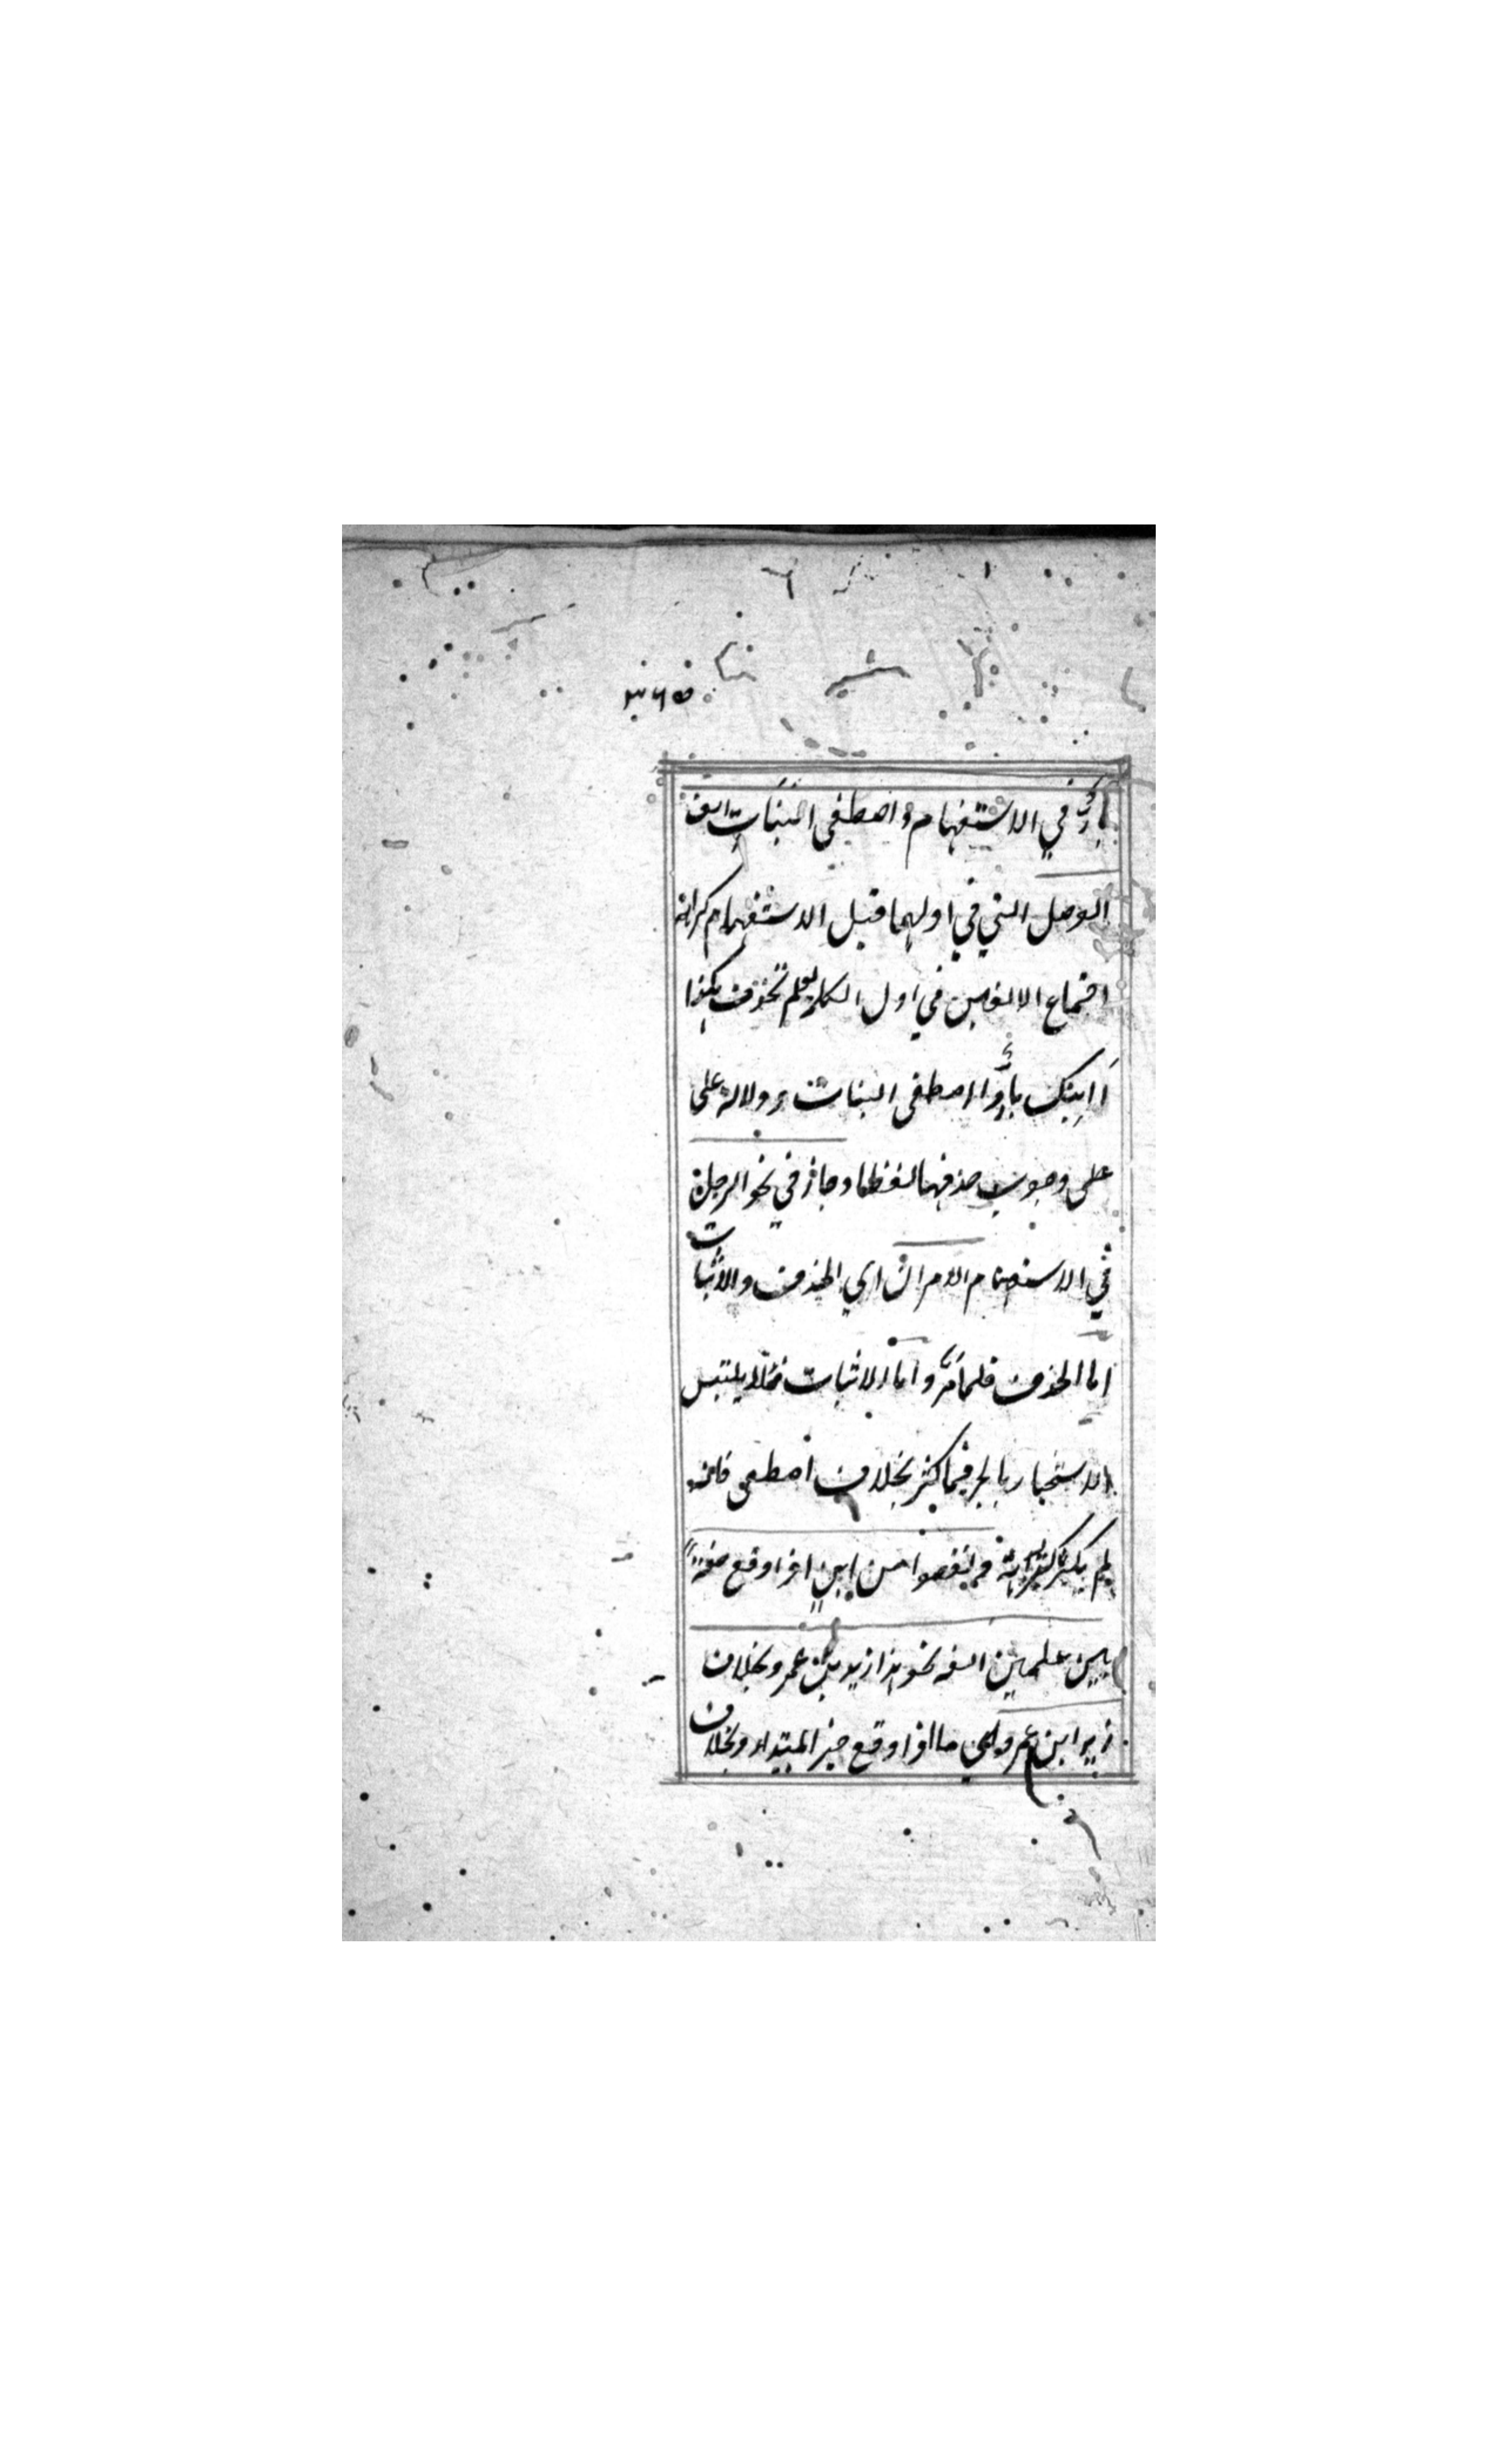 ۳۶۵
بارٌّ في الاستفهام و اصطفى البنات الف
الوصل التي في اولهما قبل الاستفهام كراهة
اجتماع الالفين في اول الكلمة فلم تحذف هكذا
أابنك بارٌّ ااصطفى البنات و دلالة على
على وجوب حذفهما لفظا وجاز في نحو الرجل
في الاستفهام الامران اي الحذف والاثبات
اما الحذف فلما مرّ و اما الاثبات فلئلا يلتبس
الاستخبار بالخبر فيما كثر بخلاف اصطفى فانه
لم يكثر كثرته و نقصوا من ابن اذا وقع صفة
بين علمين الفه نحو هذا زيد بن عمرو بخلاف
زيد ابن عمرو اذا وقع خبر المبتداء وبخلاف